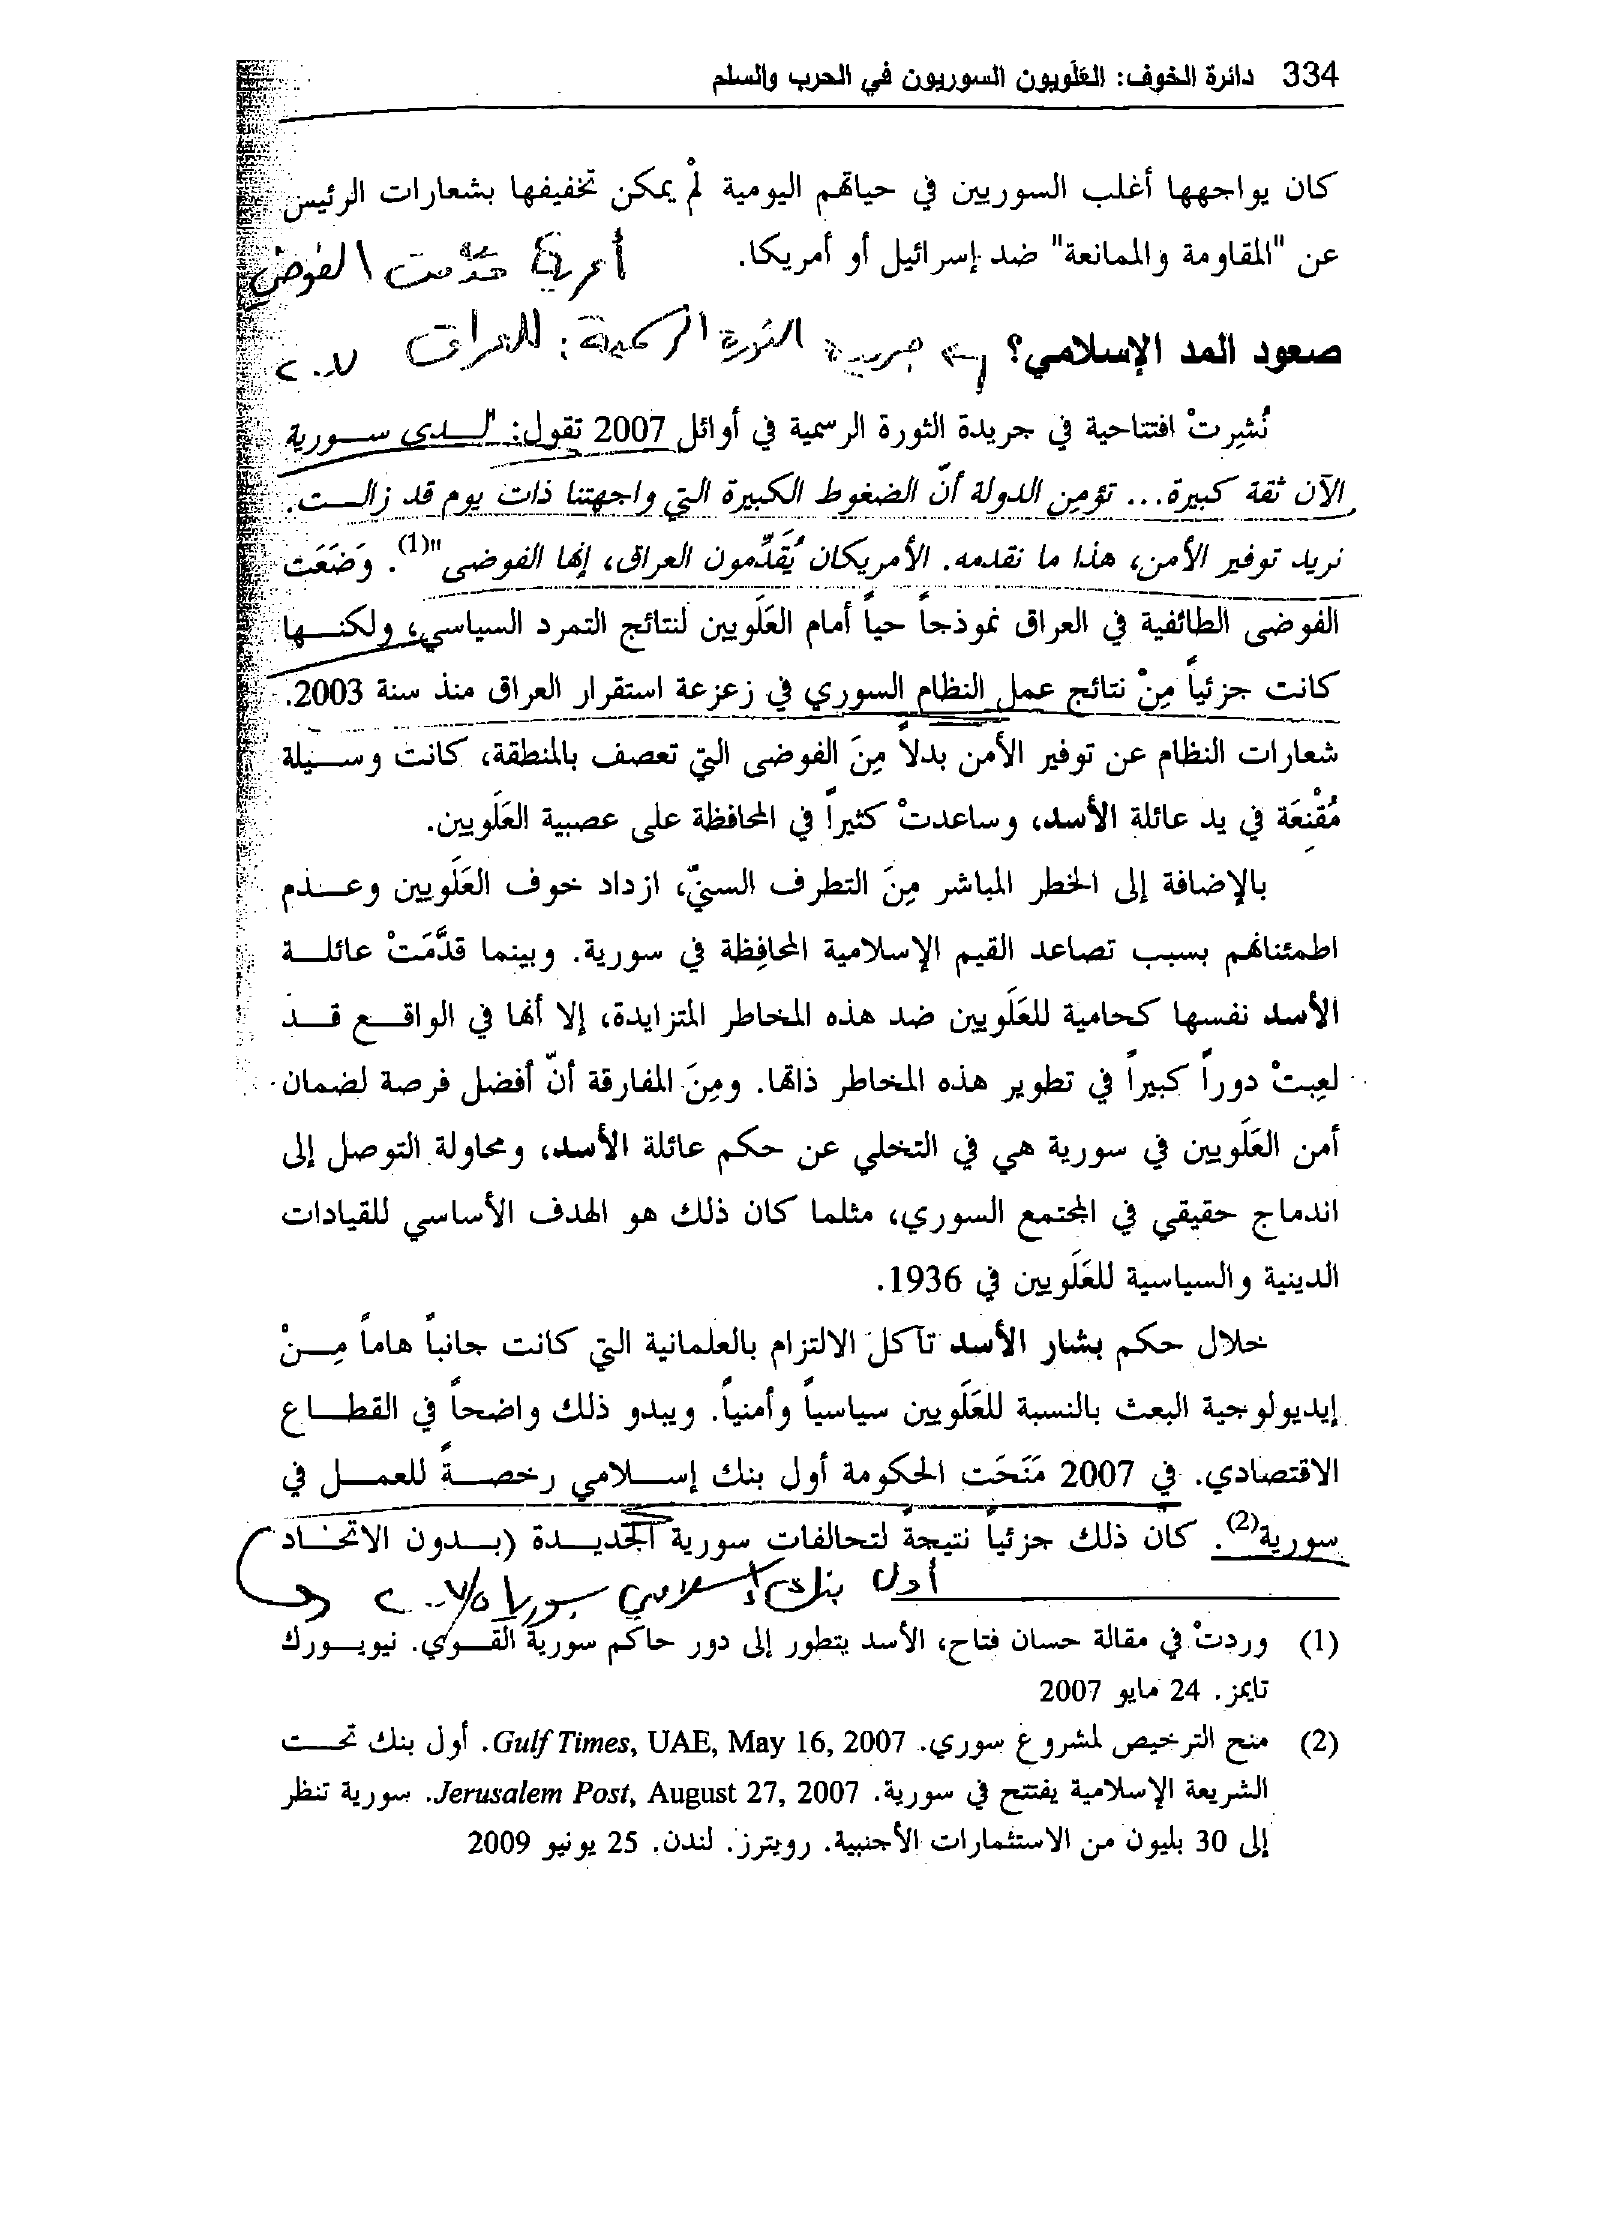 334 دائرة الخوف: العَلَويون السوريون في الحرب والسلم
كان يواجهها أغلب السوريين في حياتهم اليومية لمْ يمكن تخفيفها بشعارات الرئيس
عن "المقاومة والممانعة" ضد إسرائيل أو أمريكا.
أمريكا قدّمت الفوضى
صعود المد الإسلامي؟
جريدة الثورة الرسمية: للعراق ٢٠٠٧
نُشِرتْ افتتاحية في جريدة الثورة الرسمية في أوائل 2007 تقول: "لـدى سـورية
الآن ثقة كبيرة... تؤمِن الدولة أنّ الضغوط الكبيرة التي واجهتنا ذات يوم قد زالـت.
نريد توفير الأمن، هذا ما نقدمه. الأمريكان يُقَدِّمون العراق، إنها الفوضى"(1). وَضَعَت
الفوضى الطائفية في العراق نموذجاً حياً أمام العَلَويين لنتائج التمرد السياسي، ولكنـها
كانت جزئياً مِنْ نتائج عمل النظام السوري في زعزعة استقرار العراق منذ سنة 2003.
شعارات النظام عن توفير الأمن بدلاً مِنَ الفوضى التي تعصف بالمنطقة، كانت وسـيلة
مُقْنِعَة في يد عائلة الأسد، وساعدتْ كثيراً في المحافظة على عصبية العَلَويين.
بالإضافة إلى الخطر المباشر مِنَ التطرف السنيّ، ازداد خوف العَلَويين وعـدم
اطمئنانهم بسبب تصاعد القيم الإسلامية المحافِظة في سورية. وبينما قدَّمَتْ عائلـة
الأسد نفسها كحامية للعَلَويين ضد هذه المخاطر المتزايدة، إلا أنها في الواقـع قـد
لعِبتْ دوراً كبيراً في تطوير هذه المخاطر ذاتها. ومِنَ المفارقة أنّ أفضل فرصة لضمان
أمن العَلَويين في سورية هي في التخلي عن حكم عائلة الأسد، ومحاولة التوصل إلى
اندماج حقيقي في المجتمع السوري، مثلما كان ذلك هو الهدف الأساسي للقيادات
الدينية والسياسية للعَلَويين في 1936.
خلال حكم بشار الأسد تآكل الالتزام بالعلمانية التي كانت جانباً هاماً مِـنْ
إيديولوجية البعث بالنسبة للعَلَويين سياسياً وأمنياً. ويبدو ذلك واضحاً في القطـاع
الاقتصادي. في 2007 مَنَحَت الحكومة أول بنك إسـلامي رخصـةً للعمـل في
سورية(2). كان ذلك جزئياً نتيجةً لتحالفات سورية الجديـدة (بـدون الاتحـاد
أول بنك إسلامي بسوريا ٢٠٠٧
(1) وردتْ في مقالة حسان فتاح، الأسد يتطور إلى دور حاكم سورية القـوي. نيويـورك
تايمز. 24 مايو 2007
(2) منح الترخيص لمشروع سوري. Gulf Times, UAE, May 16, 2007. أول بنك تحـت
الشريعة الإسلامية يفتتح في سورية. Jerusalem Post, August 27, 2007. سورية تنظر
إلى 30 بليون من الاستثمارات الأجنبية. رويترز. لندن. 25 يونيو 2009